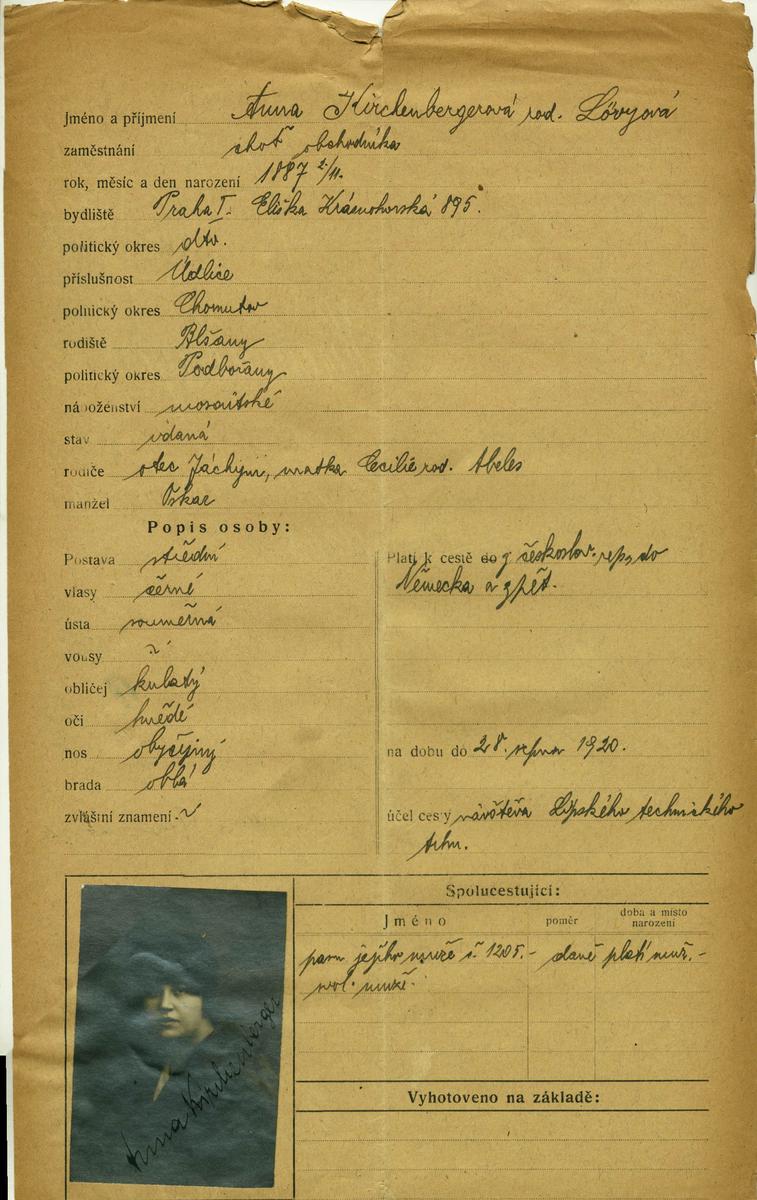 Jméno a příjmení Anna Kirchenbergerová rod. Lövyová
zaměstnání choť obchodníka
rok, měsíc a den narození 1887 2/11.
bydliště Praha I. Eliška Krásnohorská 895.
politický okres dto.
příslušnost Údlice
politický okres Chomutov
rodiště Blšany
politický okres Podbořany
náboženství mosaitské
stav vdaná
rodiče otec Jáchym, matka Cecilie rod. Abeles
manžel Oskar
Popis osoby:
Postava střední
vlasy černé
ústa souměrná
vousy
obličej kulatý
oči hnědé
nos obyčejný
brada oblá
zvláštní znamení
Platí k cestě do z českoslov. rep. do
Německa a zpět.
na dobu do 28. srpna 1920.
účel cesty návštěva Lipského technického
trhu.
Spolucestující:
Jméno poměr doba a místo narození
jejího muže č. 1205.- daně platí muž.-
muže.
Vyhotoveno na základě:
Anna Kirchenberger